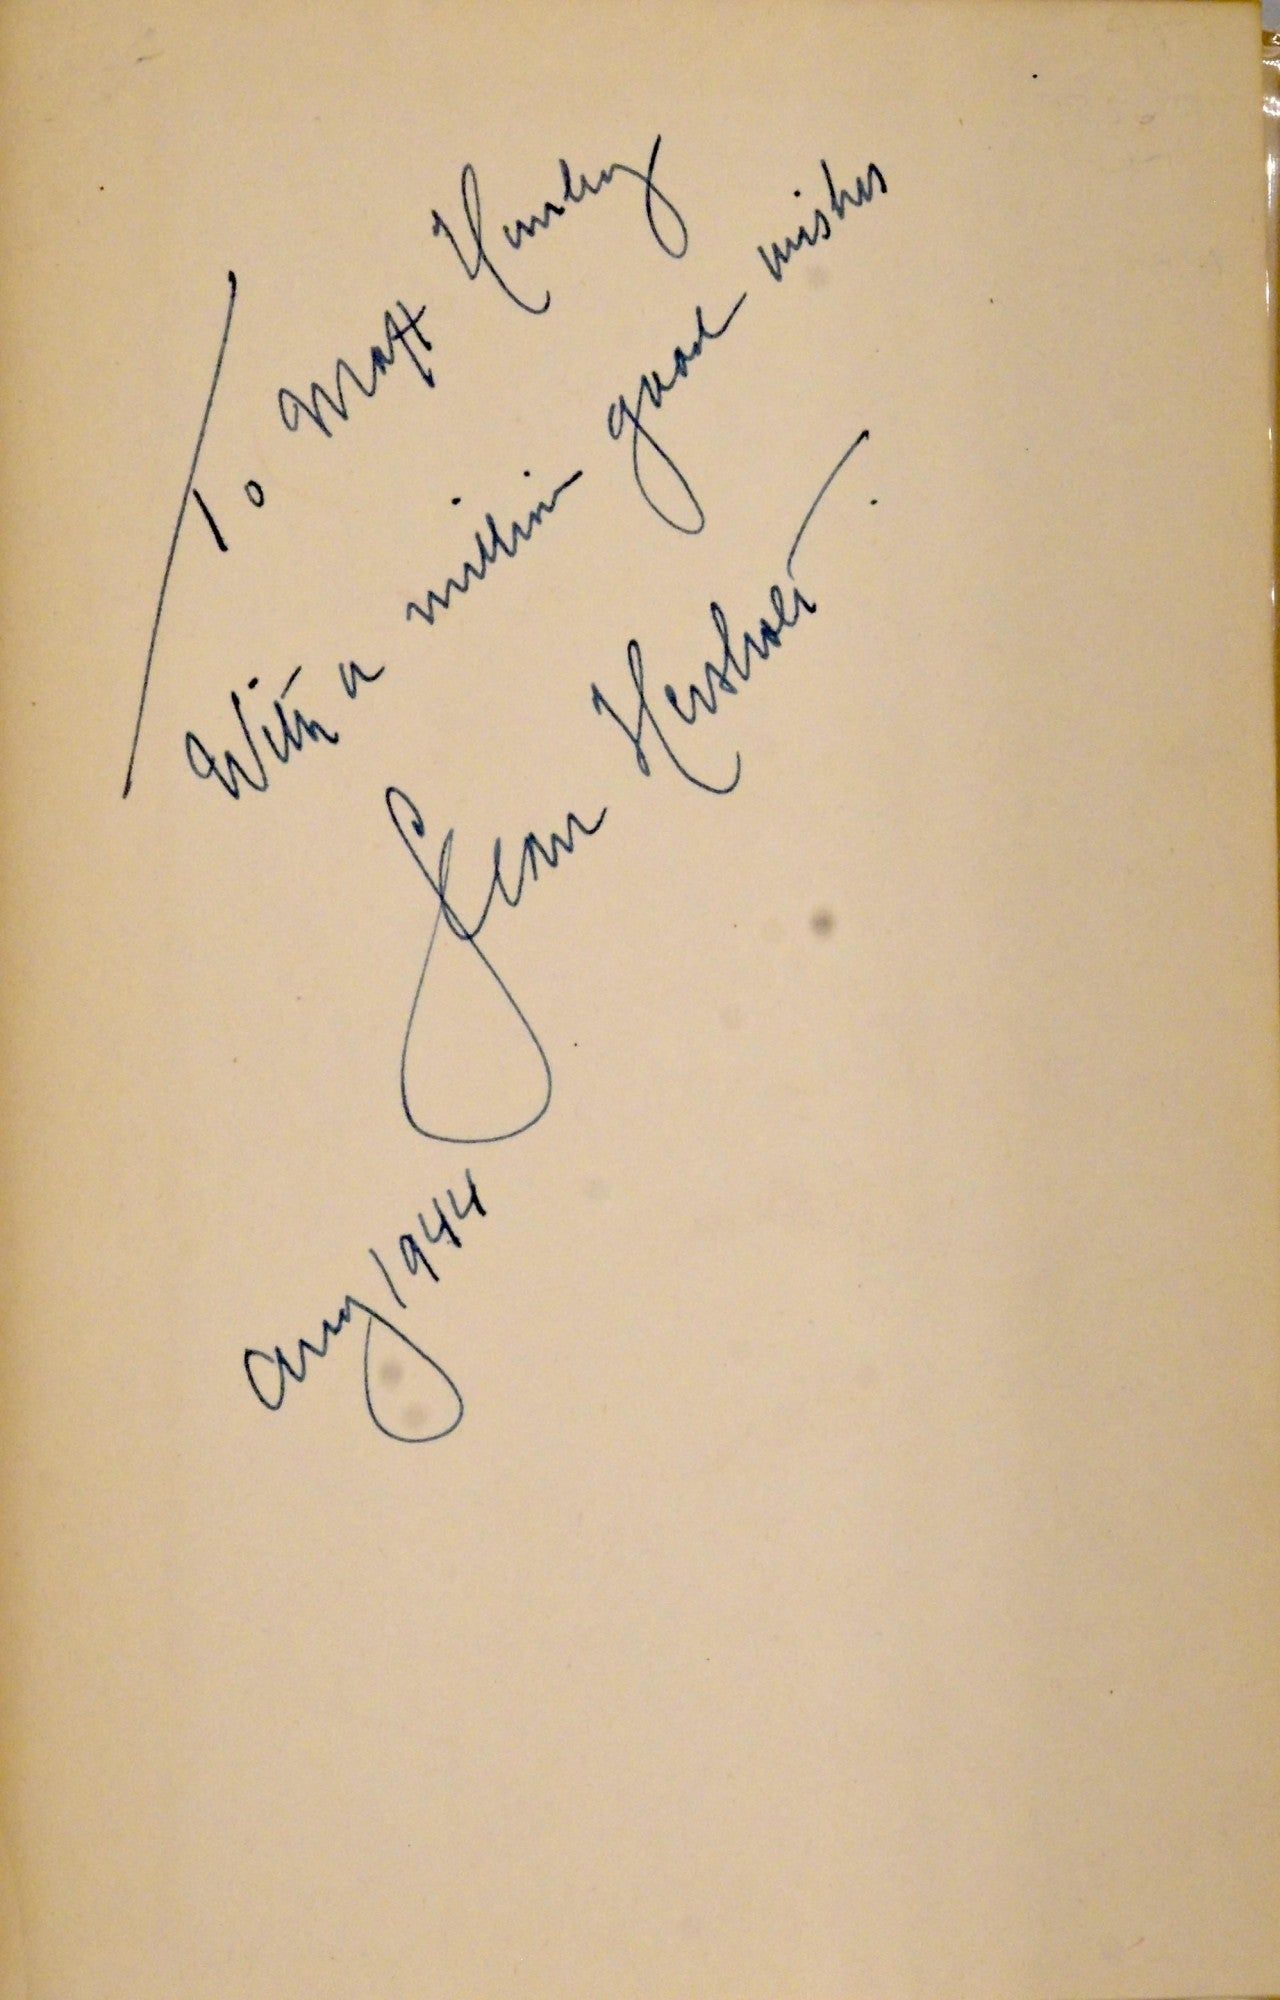 To Matt Hurley
With a million good wishes
Jean Hersholt.
Aug 1944